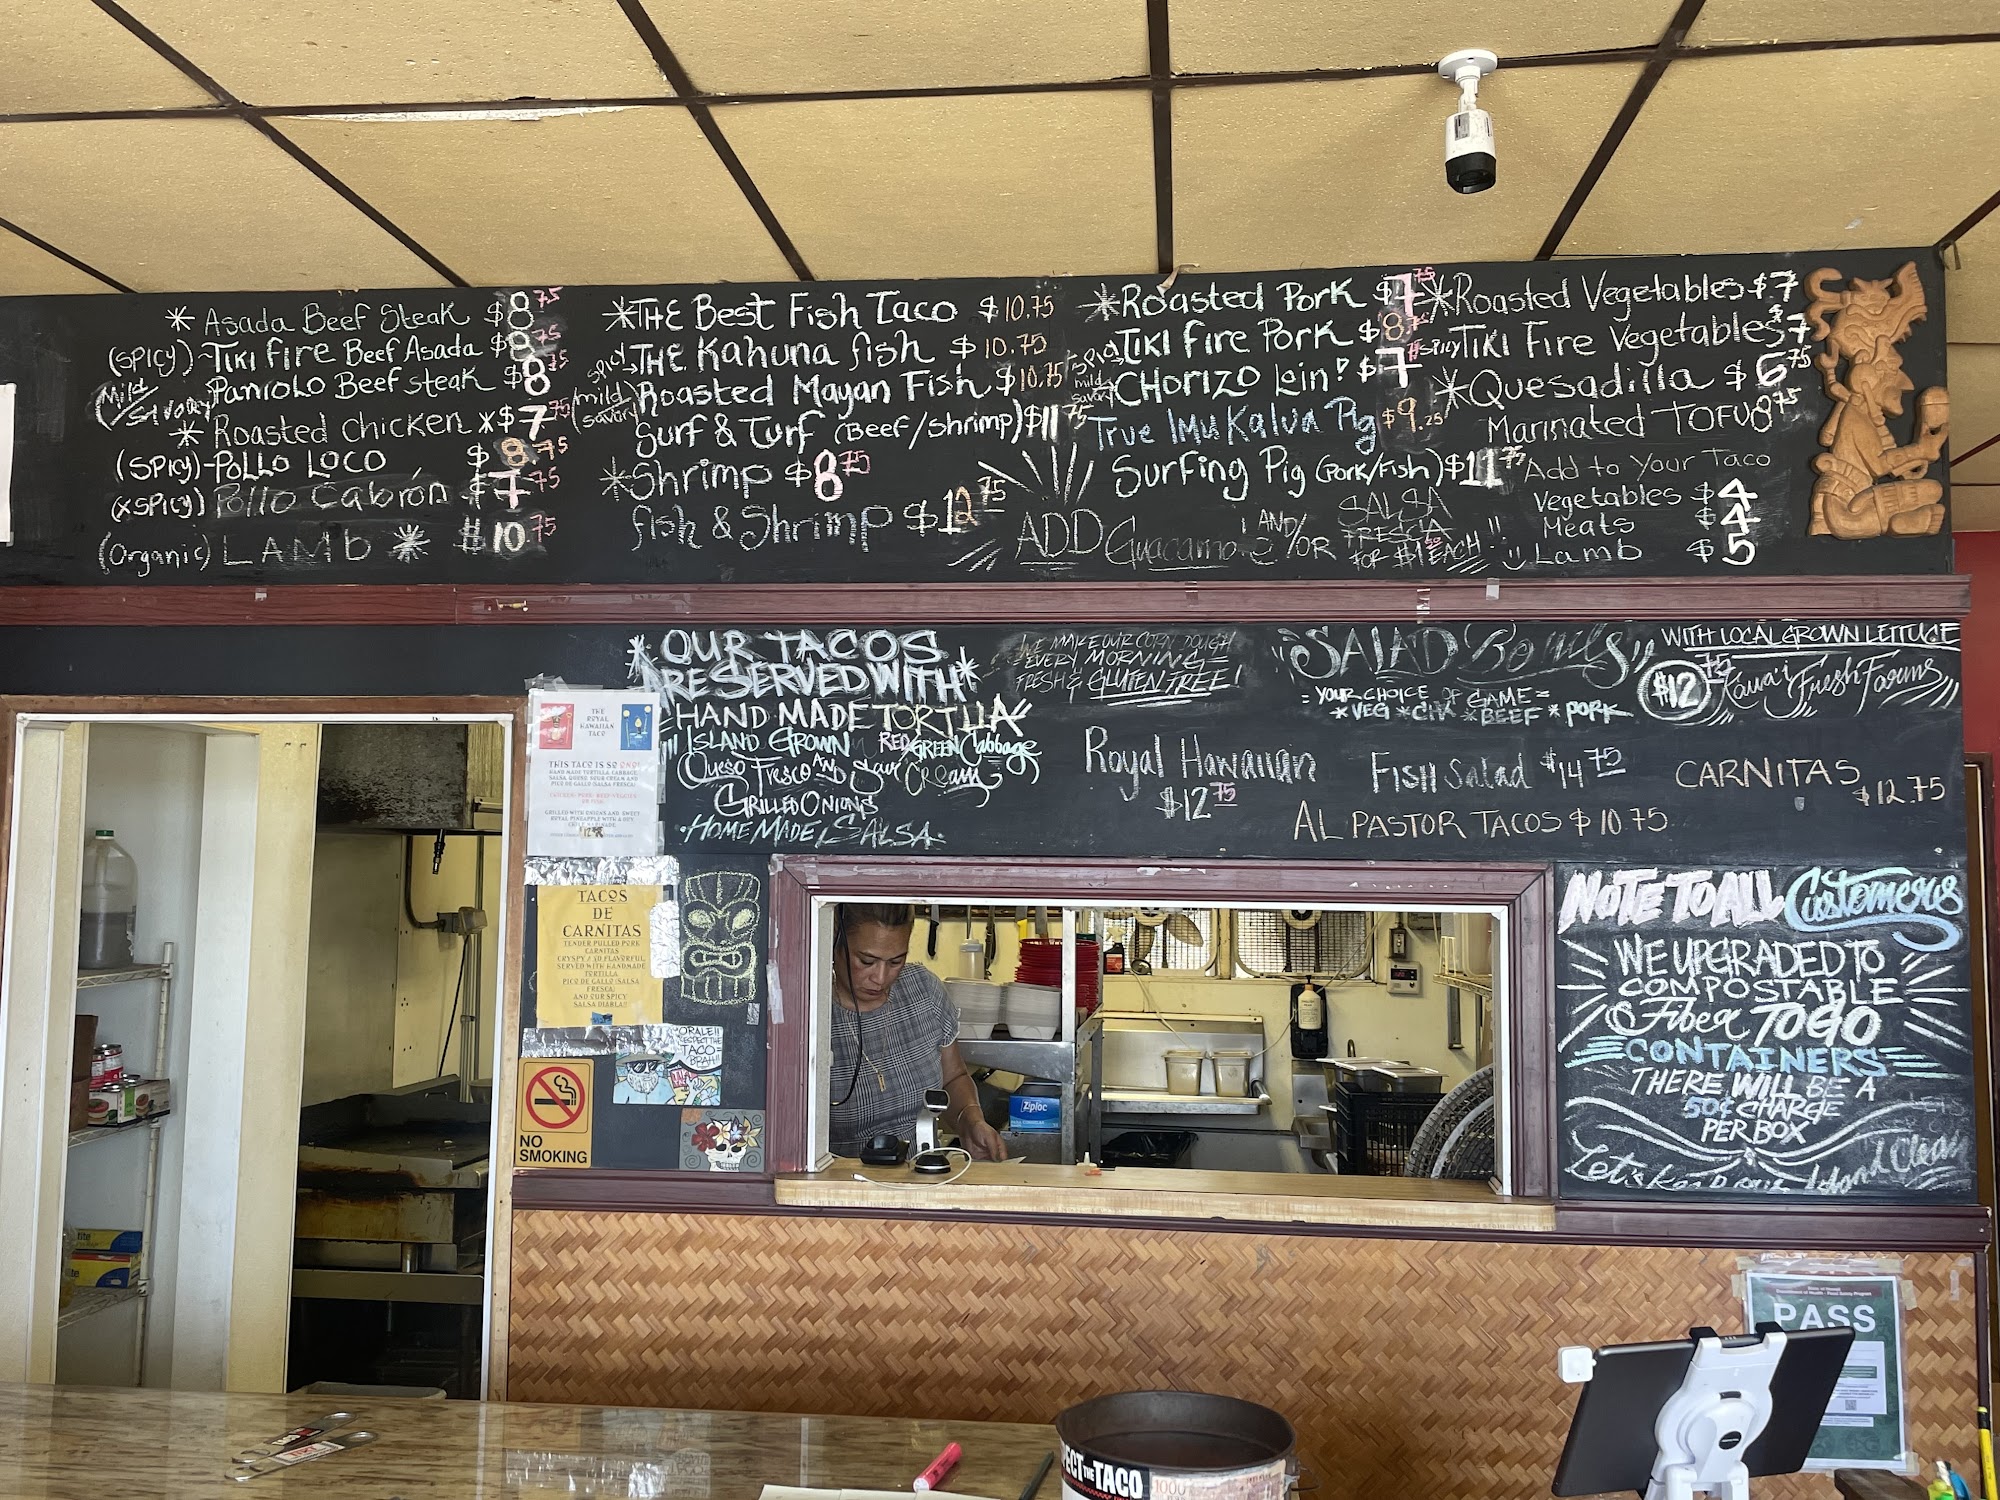 * Asada Beef Steak $8.75
(SPICY) ~TIKI FIRE Beef Asada $8.75
(Mild/Savory) Paniolo Beef steak $8.75
* Roasted chicken * $7.75
(SPICY) - POLLO LOCO $8.75
(XSPICY) Pollo Cabrón $7.75
(Organic) LAMB * $10.75
*THE Best Fish Taco $10.75
spicy THE Kahuna fish $10.75
(mild savory) Roasted Mayan Fish $10.75
Surf & Turf (Beef/Shrimp) $11.75
*Shrimp $8.75
fish & Shrimp $12.75
*Roasted Pork $7.75
spicy TIKI Fire Pork $8
mild savory CHORIZO Lein! $7
True Imu Kalua Pig $9.25
Surfing Pig (Pork/Fish) $11.75
ADD Guacamole AND/OR SALSA FRESCA FOR $1 EACH!!
*Roasted Vegetables $7
SPICY TIKI Fire Vegetables $7
*Quesadilla $6.75
Marinated TOFU 8.75
Add to Your Taco
Vegetables $4
Meats $4
Lamb $5
*OUR TACOS
ARE SERVED WITH*
HAND MADE TORTILLA
ISLAND GROWN RED GREEN Cabbage
Queso Fresco AND Sour Cream
GRILLED ONIONS
·HOME MADE SALSA·
WE MAKE OUR CORN DOUGH
EVERY MORNING =
FRESH & GLUTEN FREE!
"SALAD Bowls"
WITH LOCAL GROWN LETTUCE
= YOUR CHOICE OF GAME =
*VEG *CHK *BEEF *PORK
$12.75
Kaua'i Fresh Farms
Royal Hawaiian
$12.75
FISH Salad $14.75
CARNITAS
$12.75
AL PASTOR TACOS $10.75
THE
ROYAL
HAWAIIAN
TACO
THIS TACO IS SO ONO!
HAND MADE TORTILLA, CABBAGE,
SALSA, QUESO, SOUR CREAM AND
PICO DE GALLO (SALSA
FRESCA)
GRILLED WITH ONIONS AND SWEET
TACOS
DE
CARNITAS
TENDER PULLED PORK
CARNITAS
CRYSPY / SO FLAVORFUL
SERVED WITH HANDMADE
TORTILLA
PICO DE GALLO (SALSA
FRESCA)
AND OUR SPICY
SALSA DIABLA!!
ORALE!!
RESPECT THE
TACO
BRAH!!
NO
SMOKING
Ziploc
NOTE TO ALL Customers
WE UPGRADED TO
COMPOSTABLE
& Fiber TO GO
CONTAINERS
THERE WILL BE A
50¢ CHARGE
PER BOX
Let's Keep Our Island Clean
State of Hawaii
Department of Health - Food Safety Program
PASS
THE TACO
1000